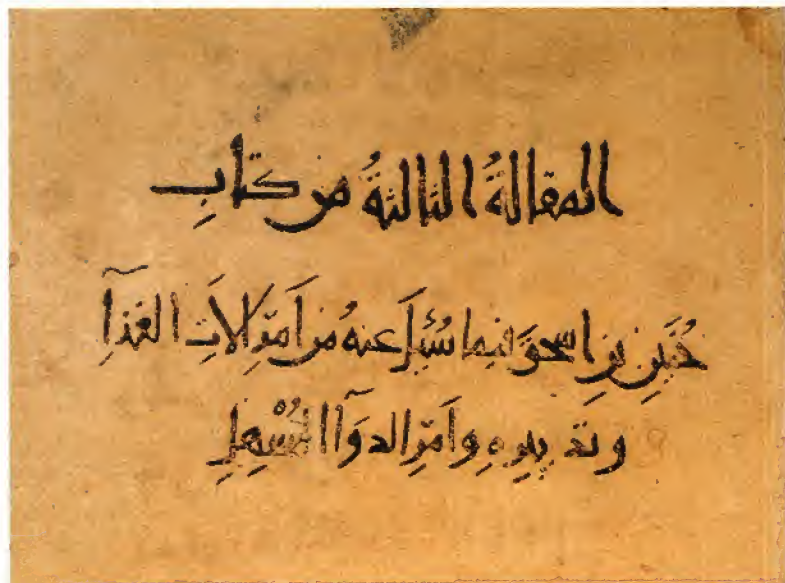 المقالةُ الثالثةُ من كتابِ
حُنَينِ بنِ اسحقَ فيما سُئِلَ عنهُ من آلاتِ الغذآءِ
وتدبيرهِ وامرِ الدوآءِ المُسْهِلِ